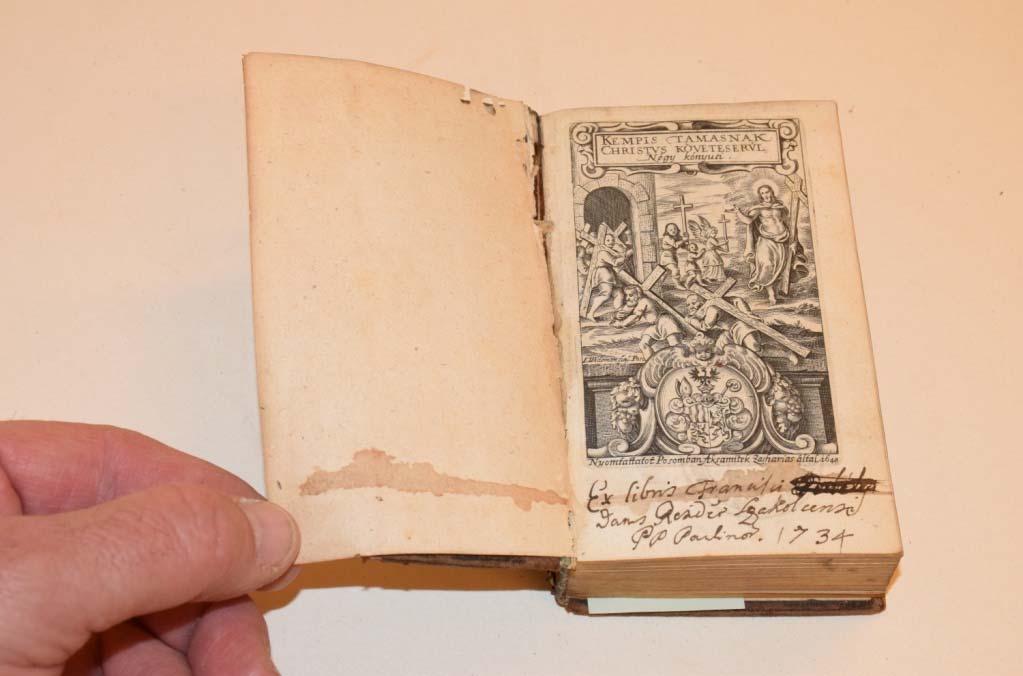 KEMPIS TAMASNAK
CHRISTVS KÖVETESERVL
Négy könyuei.
Nyomtattatot Posomban Aksamitek Zacharias által. 1648
Ex libris Francisci
dans Rendis
PP Paulinor. 1734